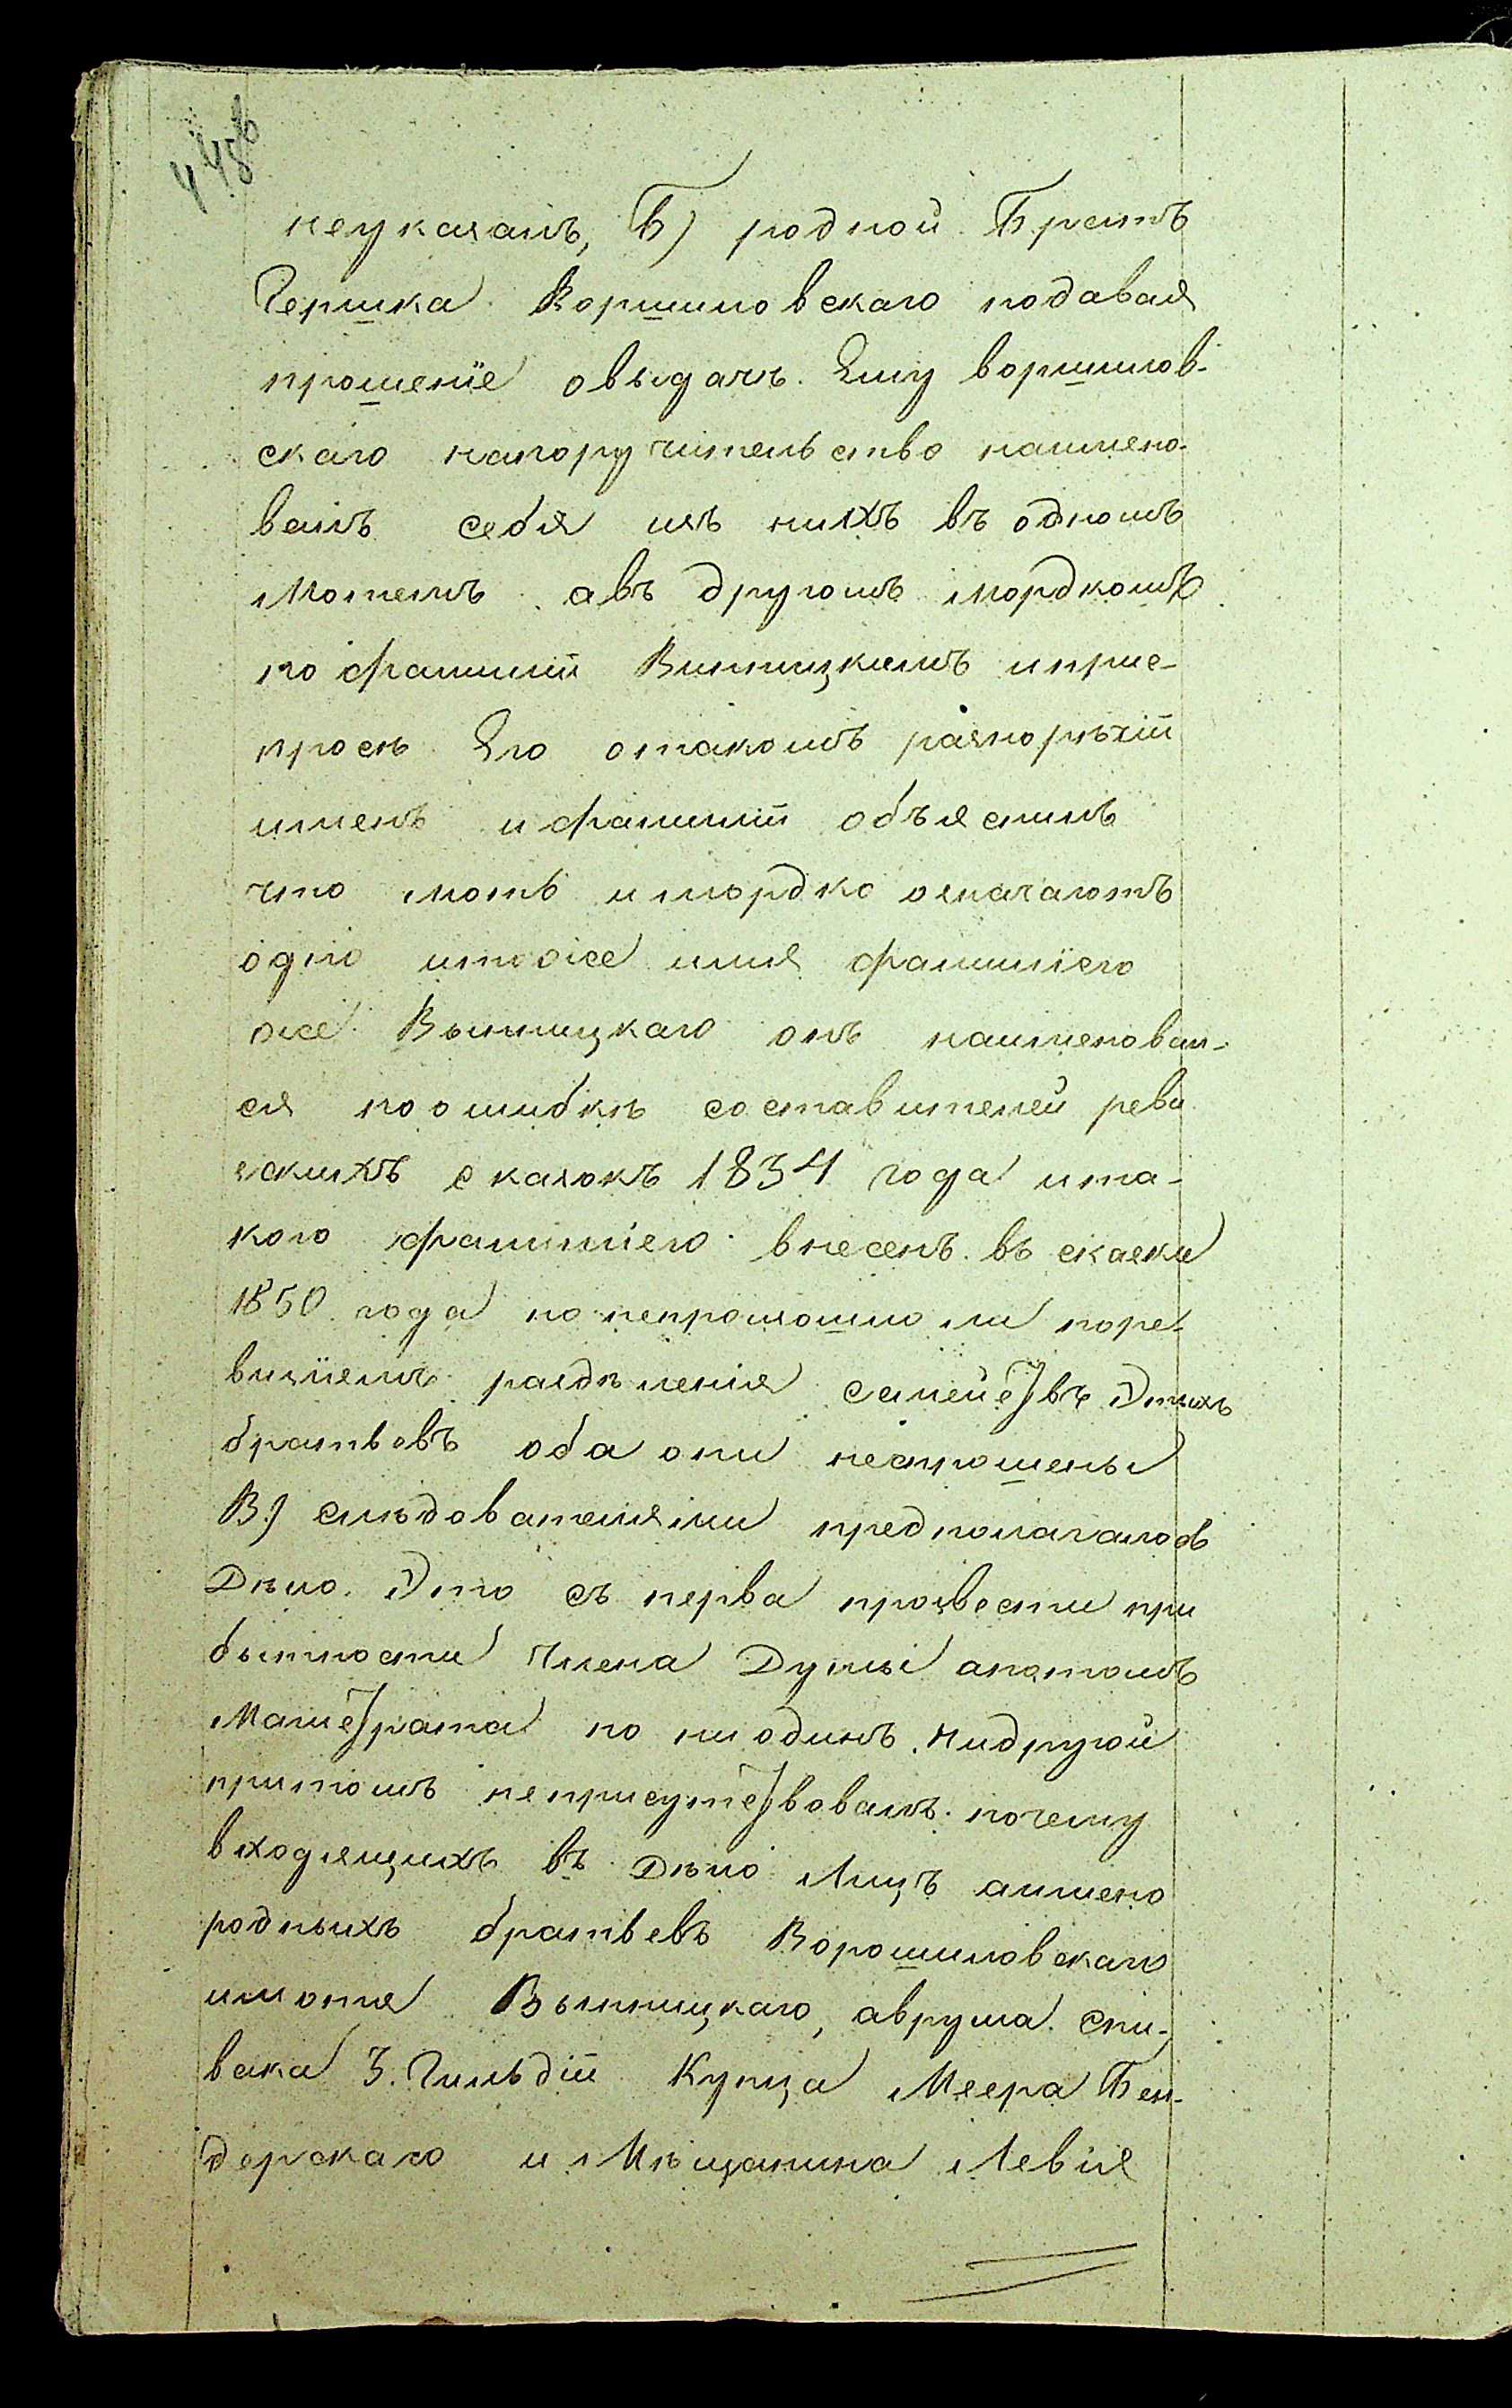 448 об
неуказалъ, Б) родной Братъ
Гершка Воршиловскаго подавая
прошеніе овыдачѣ Ему воршилов-
скаго напоручительство наимено-
валъ себя изъ нихъ въ одномъ
Мотемъ авъ другомъ мордкомъ
по фамиліи Винницкимъ иприс-
просѣ Его отакомъ разнорѣчіи
именъ и фамиліи объяснилъ
что моть и мордко означаютъ
одно итоже имя фамиліею
же Вынницкаго онъ наименовал-
ся по ошибкѣ составителей реви
зскихъ сказокъ 1834 года ита-
кою фамиліею внесенъ въ сказки
1850 года но непроизошло ли поре-
визіямъ раздѣленія семействъ Этихъ
братьевъ оба они неспрошены
В) слѣдователями предполагалось
Дѣло Это съ перва произвести при
бытности Члена Думы апотомъ
Магистрата но ни одинъ нидругой
притомъ неприсутствовалъ почему
входящихъ въ Дѣло Лицъ аимено
родныхъ братьевъ Ворошиловскаго
имотя Вынницкаго, аврума Спи-
вака 3. Гильдіи Купца Меера Бен-
дерскаго и Мѣщанина Левія